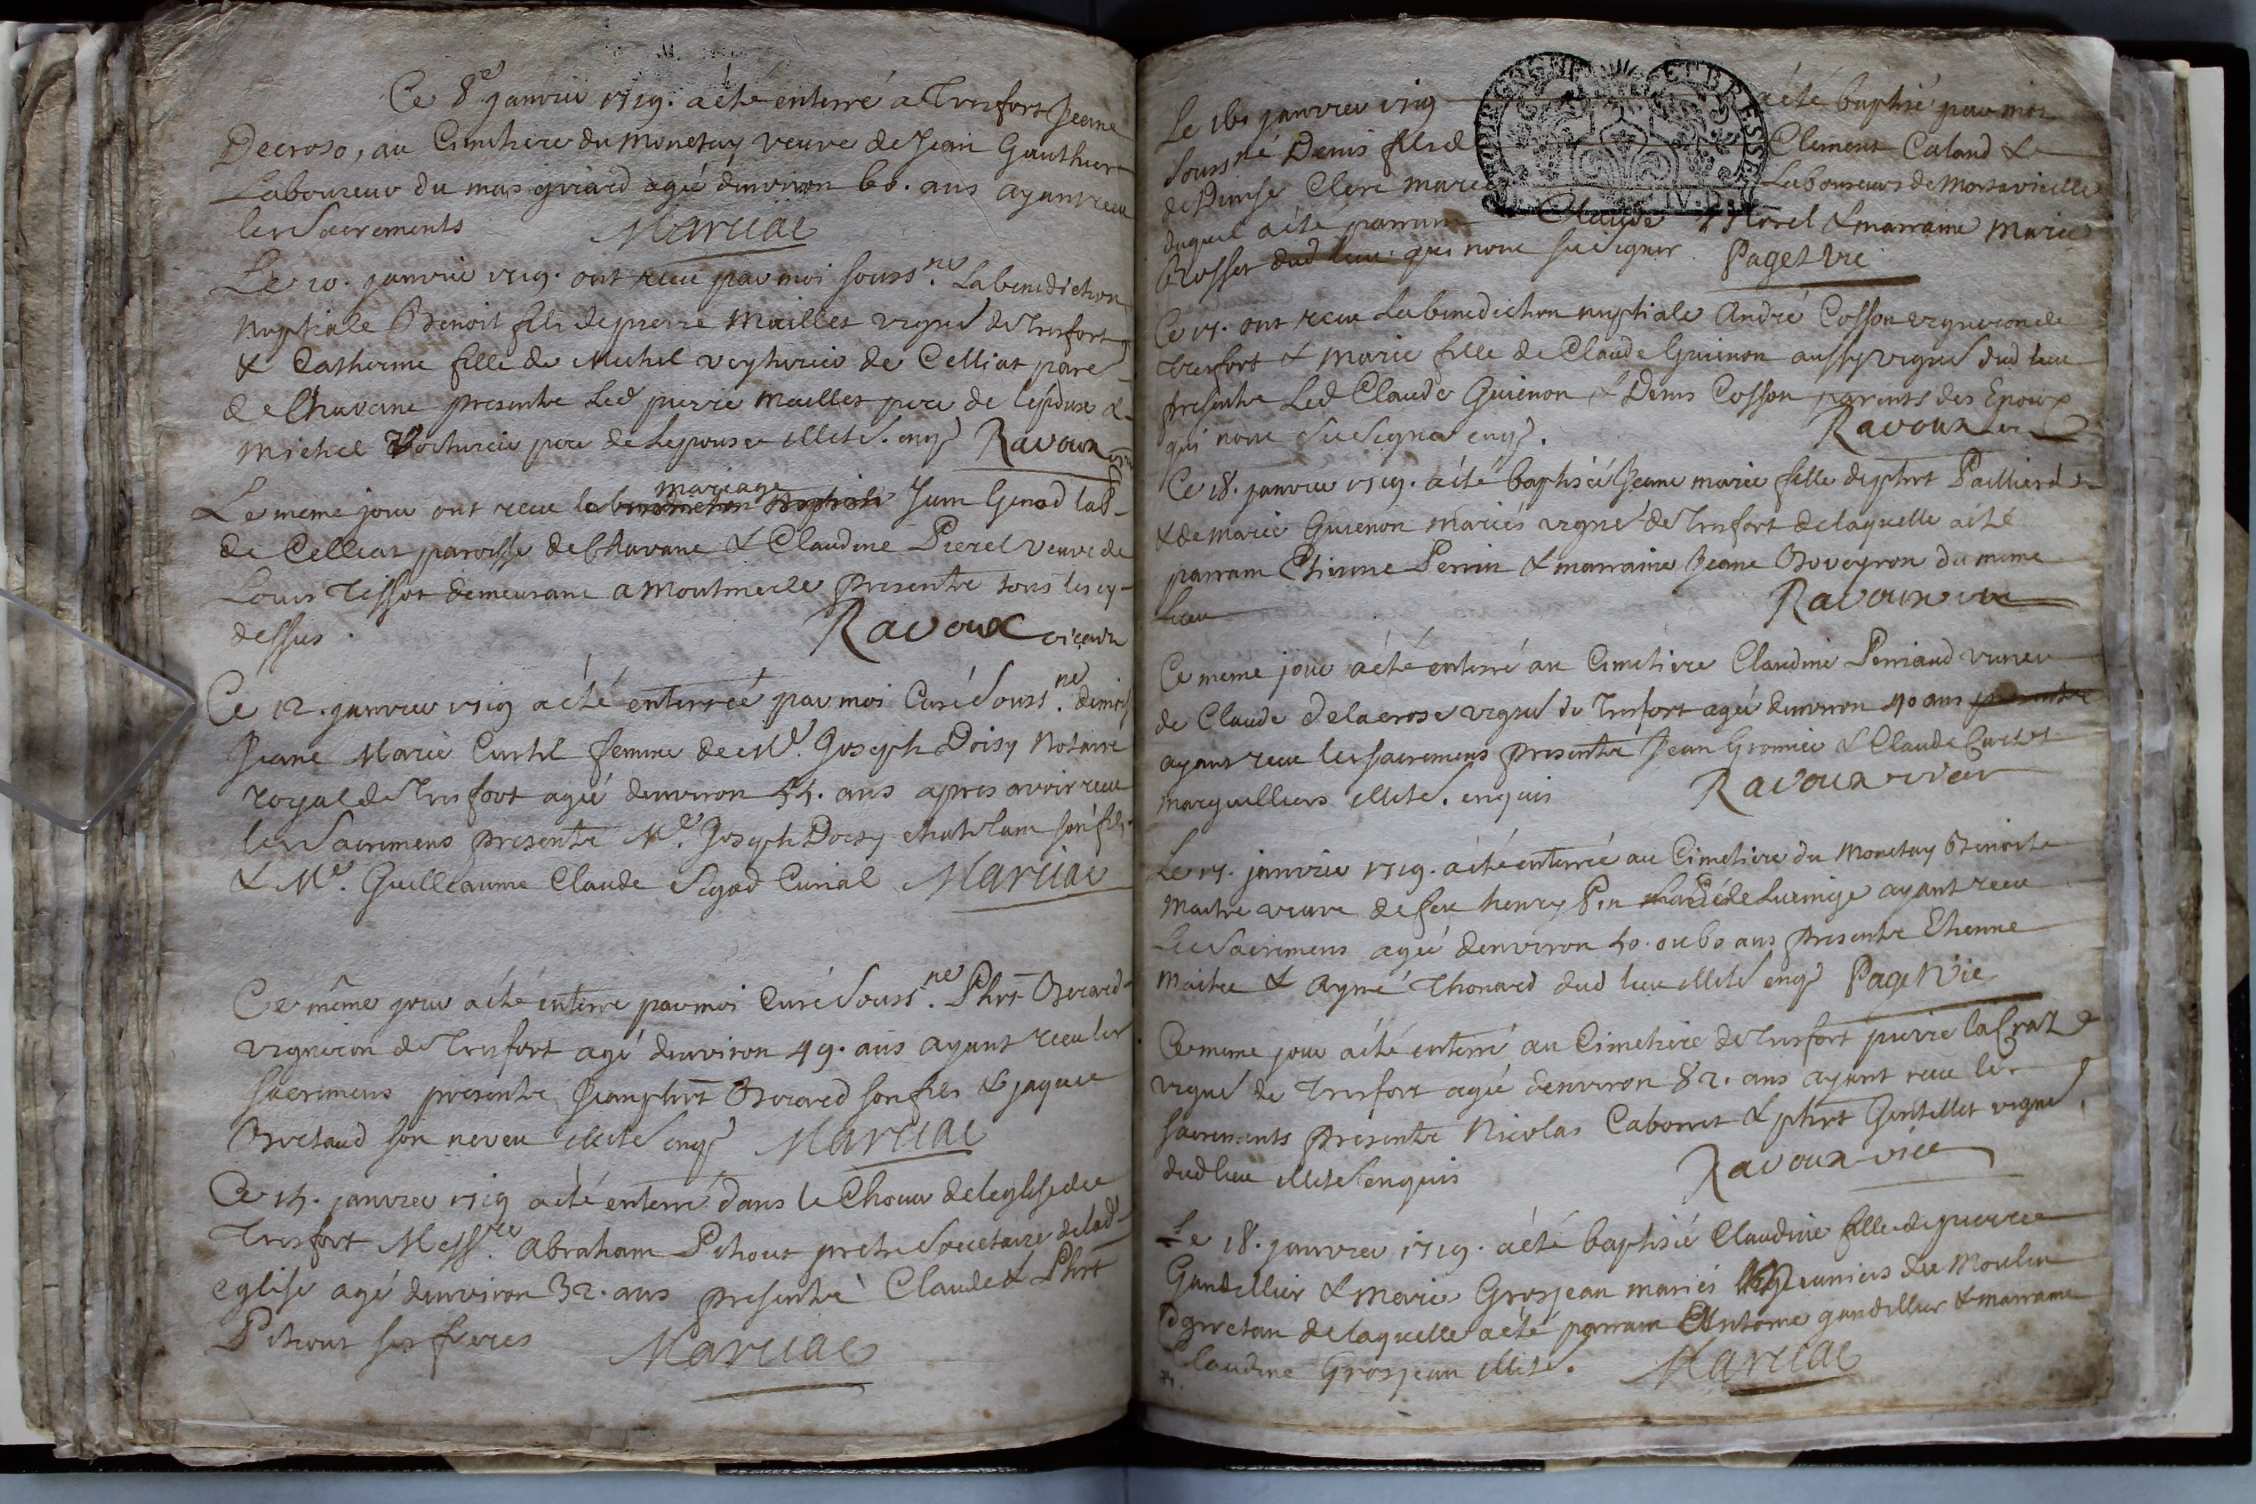 Ce 8e janvier 1719. a été enterré a Tresfort Jeane
Decroso, au Cimetiere du Monetay veuve de Jean Gauthier
Laboureur du mas girard agé denviron 60. ans ayant receu
les Sacrements Maruiac
Le 10. janvier 1719. ont receu par moi souss.né La benediction
Nuptiale Benoit fils de pierre Maillet vign.n de Tresfort
& Catherine fille de Michel voyturier de Celliat par.e
de Chavane presente Led pierre Maillet pere de lepoux &
Michel Voiturier pere de Lepouse illité. enq.s Ravoux
mariage
Le meme jour ont receu la benediction Nuptiale Jean Genod lab.
de Celliat paroisse de Chavane & Claudine Pierel veuve de
Louis Tissot demeurant a Montmerle presente tous les cy-
dessus. Ravoux vicaire
Ce 12. janvier 1719 a été enterrée par moi Curé Souss.né demois.
Jeane Marie Curtil femme de Me. Joseph Doisy Notaire
royal de Tresfort agé denviron 55. ans apres avoir receu
les Sacremens presente Me. Joseph Doisy chatelain son fils.
& Me. Guilleaume Claude Sigod Curial Maruiac
Ce même jour a été enterre par moi Curé Souss.né Phrt Berard
vigneron de Tresfort agé denviron 49. ans ayant receu les
sacremens presente Jeanphrt Berard son fils & jaque
Bretaud son neveu illité enq.s Maruiac
Ce 15. janvier 1719 a été enterré dans le Choeur de leglise de
Tresfort Mess.re Abraham Pihout pretre Societaire de lad.
eglise agé denviron 32. ans presente Claude & Phrt
Pihout ses freres Maruiac
Le 16. janvier 1719 a été baptisé par moi
Souss.né Denis fils de Clement Caland &
de Denise Clere mariés Laboureurs de Morsavielle
duquel a été parrain Claude Morel & marraine Marie
Brosset dud lieu. qui nont su signer Paget Vic
Ce 17. ont receu La benediction nuptiale André Cosson vigneron de
Tresfort & Marie fille de Claude Guienon aussy vign.n dud lieu
presente Led Claude Guienon & Denis Cosson parents des Epoux
qui nont su Signer enq.s. Ravoux vic
Ce 18. janvier 1719. a été baptisée Jeane marie fille de phrt Pailliard
& de marie Guienon mariés vign.n de Tresfort de laquelle a été
parrain Etienne Perrin & marraine Jeane Boveyron du meme
Lieu Ravoux vic
Ce meme jour a été enterré au Cimetiere Claudine Perriaud veuve
de Claude Delacrose vign.n de Tresfort agé denviron 40 ans presente
ayant receu les sacremens presente Jean Gromier & Claude Curtet
marguilliers illité. enquis Ravoux vicair
Le 17. janvier 1719. a été enterrée au Cimetiere du Monetay Benoite
Maitre veuve de feu henry Pin de Lucinge ayant receu
Les Sacremens agé denviron 50. ou 60 ans presente Etienne
Maitre & Aymé Thonard dud lieu illité enq.s Paget Vic
Ce meme jour a été enterré au Cimetiere de Tresfort pierre la Craz
vign.n de Tresfort agé denviron 82. ans ayant receu les
sacrements presente Nicolas Caborret & phrt Gentillet vign.n
dud lieu illité enquis Ravoux vice
Le 18. janvier 1719. a été baptisé Claudine fille de pierre
Gandillier & marie Grosjean mariés meuniers du Moulin
de laquelle a été parrain Antoine gandillier & marraine
Claudine Grosjean illité. Maruiac